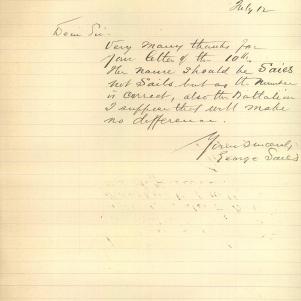 July 12
Dear Sir.
Very many thanks for
your letter of the 10th.
The name should be Saies
not Sails but as the number
is correct, also the Battalion
I suppose that will make
no difference.
Yours sincerely
George Saies